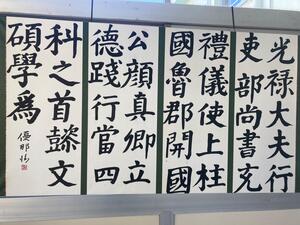 光禄大夫行
吏部尚書充
禮儀使上柱
國魯郡開國
公顔真卿立
德踐行當四
科之首懿文
碩學為